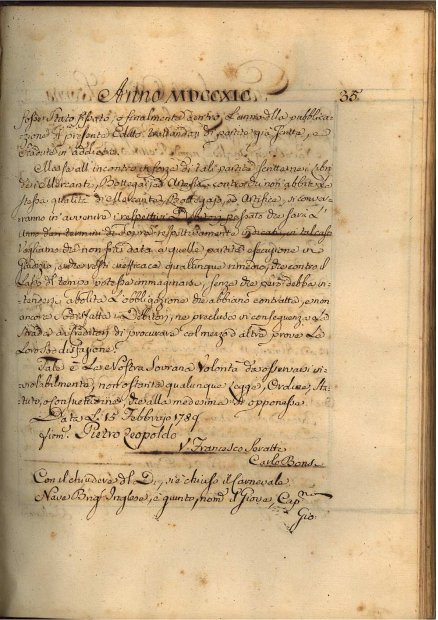 Anno MDCCXIC. 35
fosse stato fissato, o finalmente dentro l'anno dalla pubblica-
zione del presente Editto trattandosi di partite già scritte, e
cadute in addietro.
Messe all'incontro in forza di tali partite scritte nei Libri
dei Mercante, Bottegai, ed Artisti contro chi non abbia
qualità di Mercante, Bottegajo, ed Artefice, si conser-
veranno in avvenire i respettivi passato che sarà l'
uno dei termini di sopra respettivamente in tal caso
Vogliamo che non sia data a quelle partite esecuzione in
Giudizio, e che resti inefficace qualunque rimedio, che contro il
Lasso di tempo potesse immaginarsi, senza che però debba in-
tendersi abolita l'obbligazione che abbiano contratta, e non
ancora sodisfatta i Debitori, ne preclusa in conseguenza la
strada ai Creditori di procurare col mezzo d'altre prove la
loro sodisfazione.
Tale è La Nostra Sovrana Volontà da osservarsi in-
violabilmente, nonostante qualunque Legge, Ordine, Sta-
tuto, o consuetudine che alla medesima si opponesse.
Data Li 15 Febbrajo 1789
firm. Pietro Leopoldo
V. Francesco Seratti
Carlo Bonsi
Con il chiudere del Dì, si è chiuso il Carnevale
Nave Brig. Inglese, è giunto, nom. il Giove, Cap.
Gio.